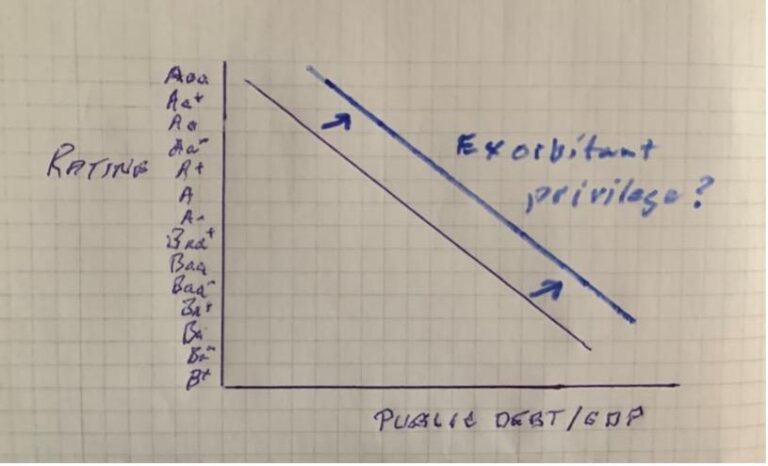 RATING
Aaa
Aa+
Aa
Aa-
A+
A
A-
Baa+
Baa
Baa-
Ba+
Ba
Ba-
B+
Exorbitant
privilege?
PUBLIC DEBT/GDP